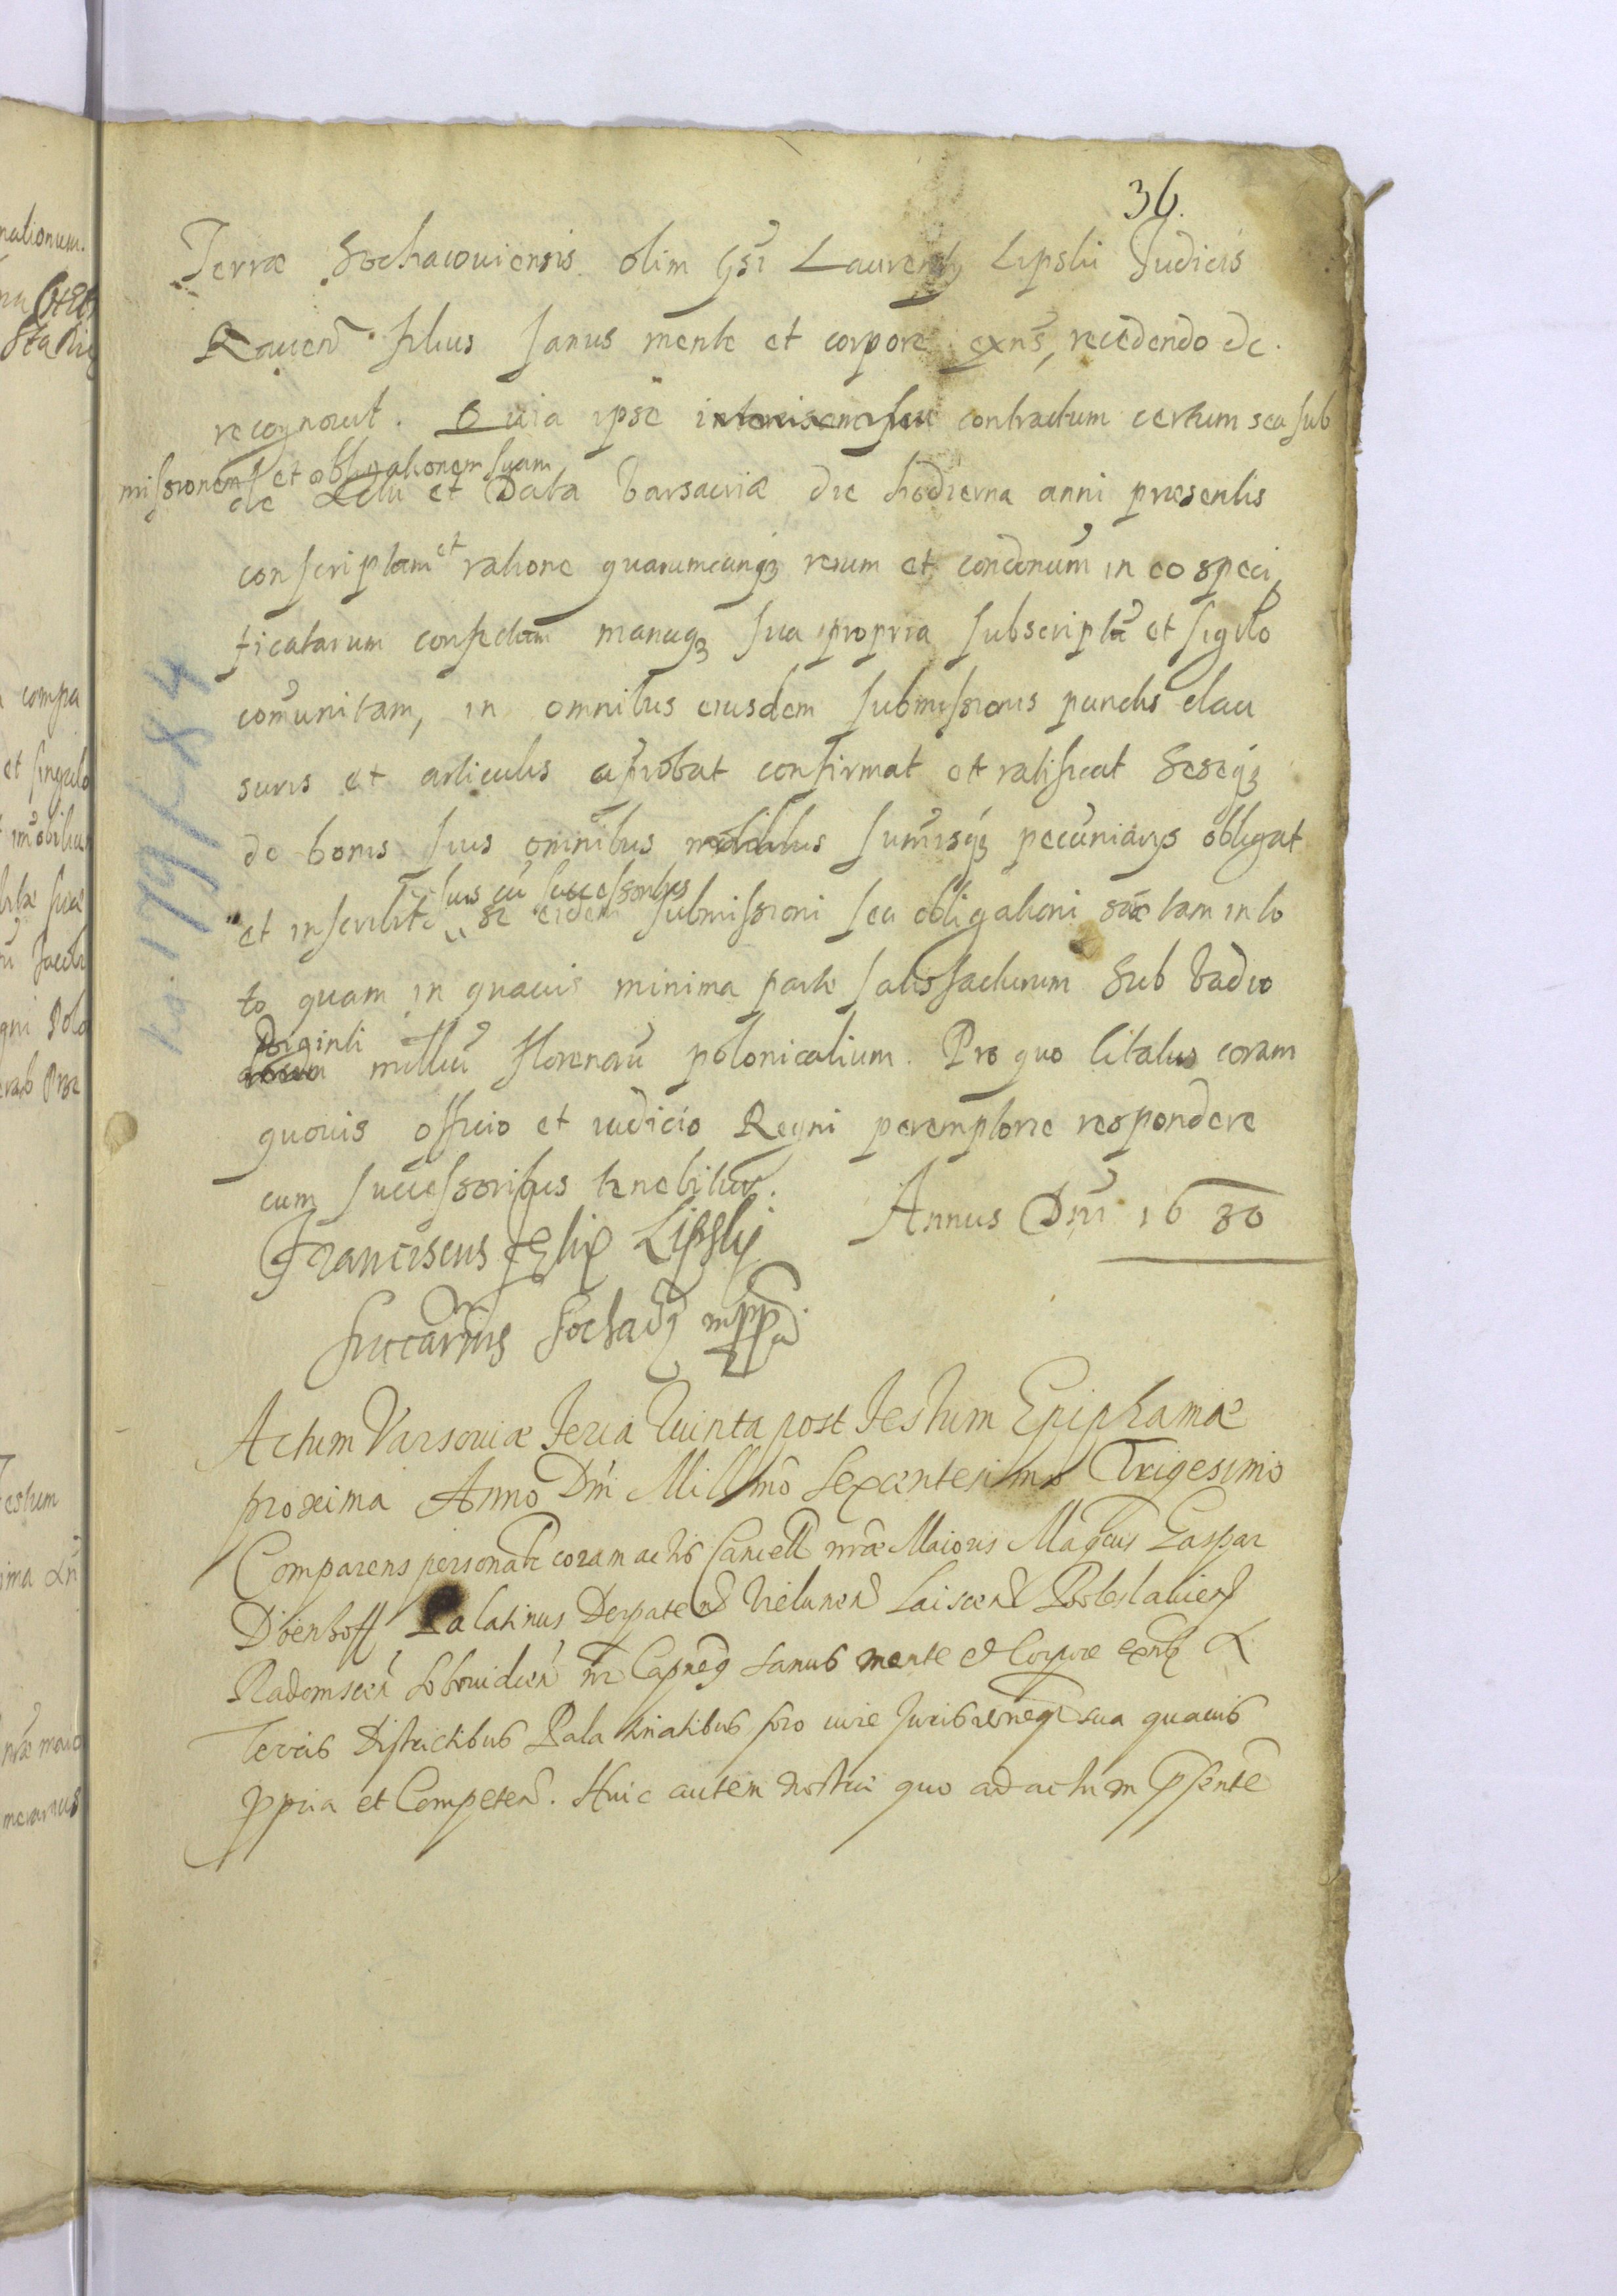 36.
Terræ Sochacouiensis olim Gsi Laurentÿ Lipskii Judicis
Rauen filius sanus mente et corpore exns, recedendo de.
recognouit. Quia ipse contractum certum seu sub
missionem et obligationem suam
de Actu et Data Varsauiæ die hodierna anni præsentis
conscriptam et ratione quarumcunqz rerum et condonum in eo speci
ficatarum confectam manuqz sua propria subscripta et sigilo
comunitam, in omnibus eiusdem submissionis punctis clau
suris et articulis aprobat confirmat et ratificat Seseqz
de bonis suis omnibus mobilibus sumisqz pecuniarÿs obligat
suis cu successoribus
et inscribit se eidem submissioni seu obligationi suæ tam in to
to quam in quauis minima parte satisfacturum Sub Vadio
Viginti
milliu florenoru polonicalium. Pro quo citatus coram
quouis officio et iudicio Regni peremptorie respondere
cum successoribus tenebitur.
Annus Dni 1630
Franciscus Felix Lipskÿ
Succamrius Sochac mppa
Actum Varsouiæ Feria Quinta post Festum Epiphaniæ
proxima Anno Dni Millmo Sexcentesimo Trigesimo
Comparens personalr coram actis Cancell nræ Maioris Magcus Gaspar
Dönhoff Palatinus Derpaten Vielunen Boleslauien
Radomscen nr Capneq sanus mente et Corpore exns
Terris Districtibus Palatinatibus foro iure Jurisdneq sua quauis
ppria et Competen. Huic autem nostræ quo ad actum psente
kg. 179 f. 84